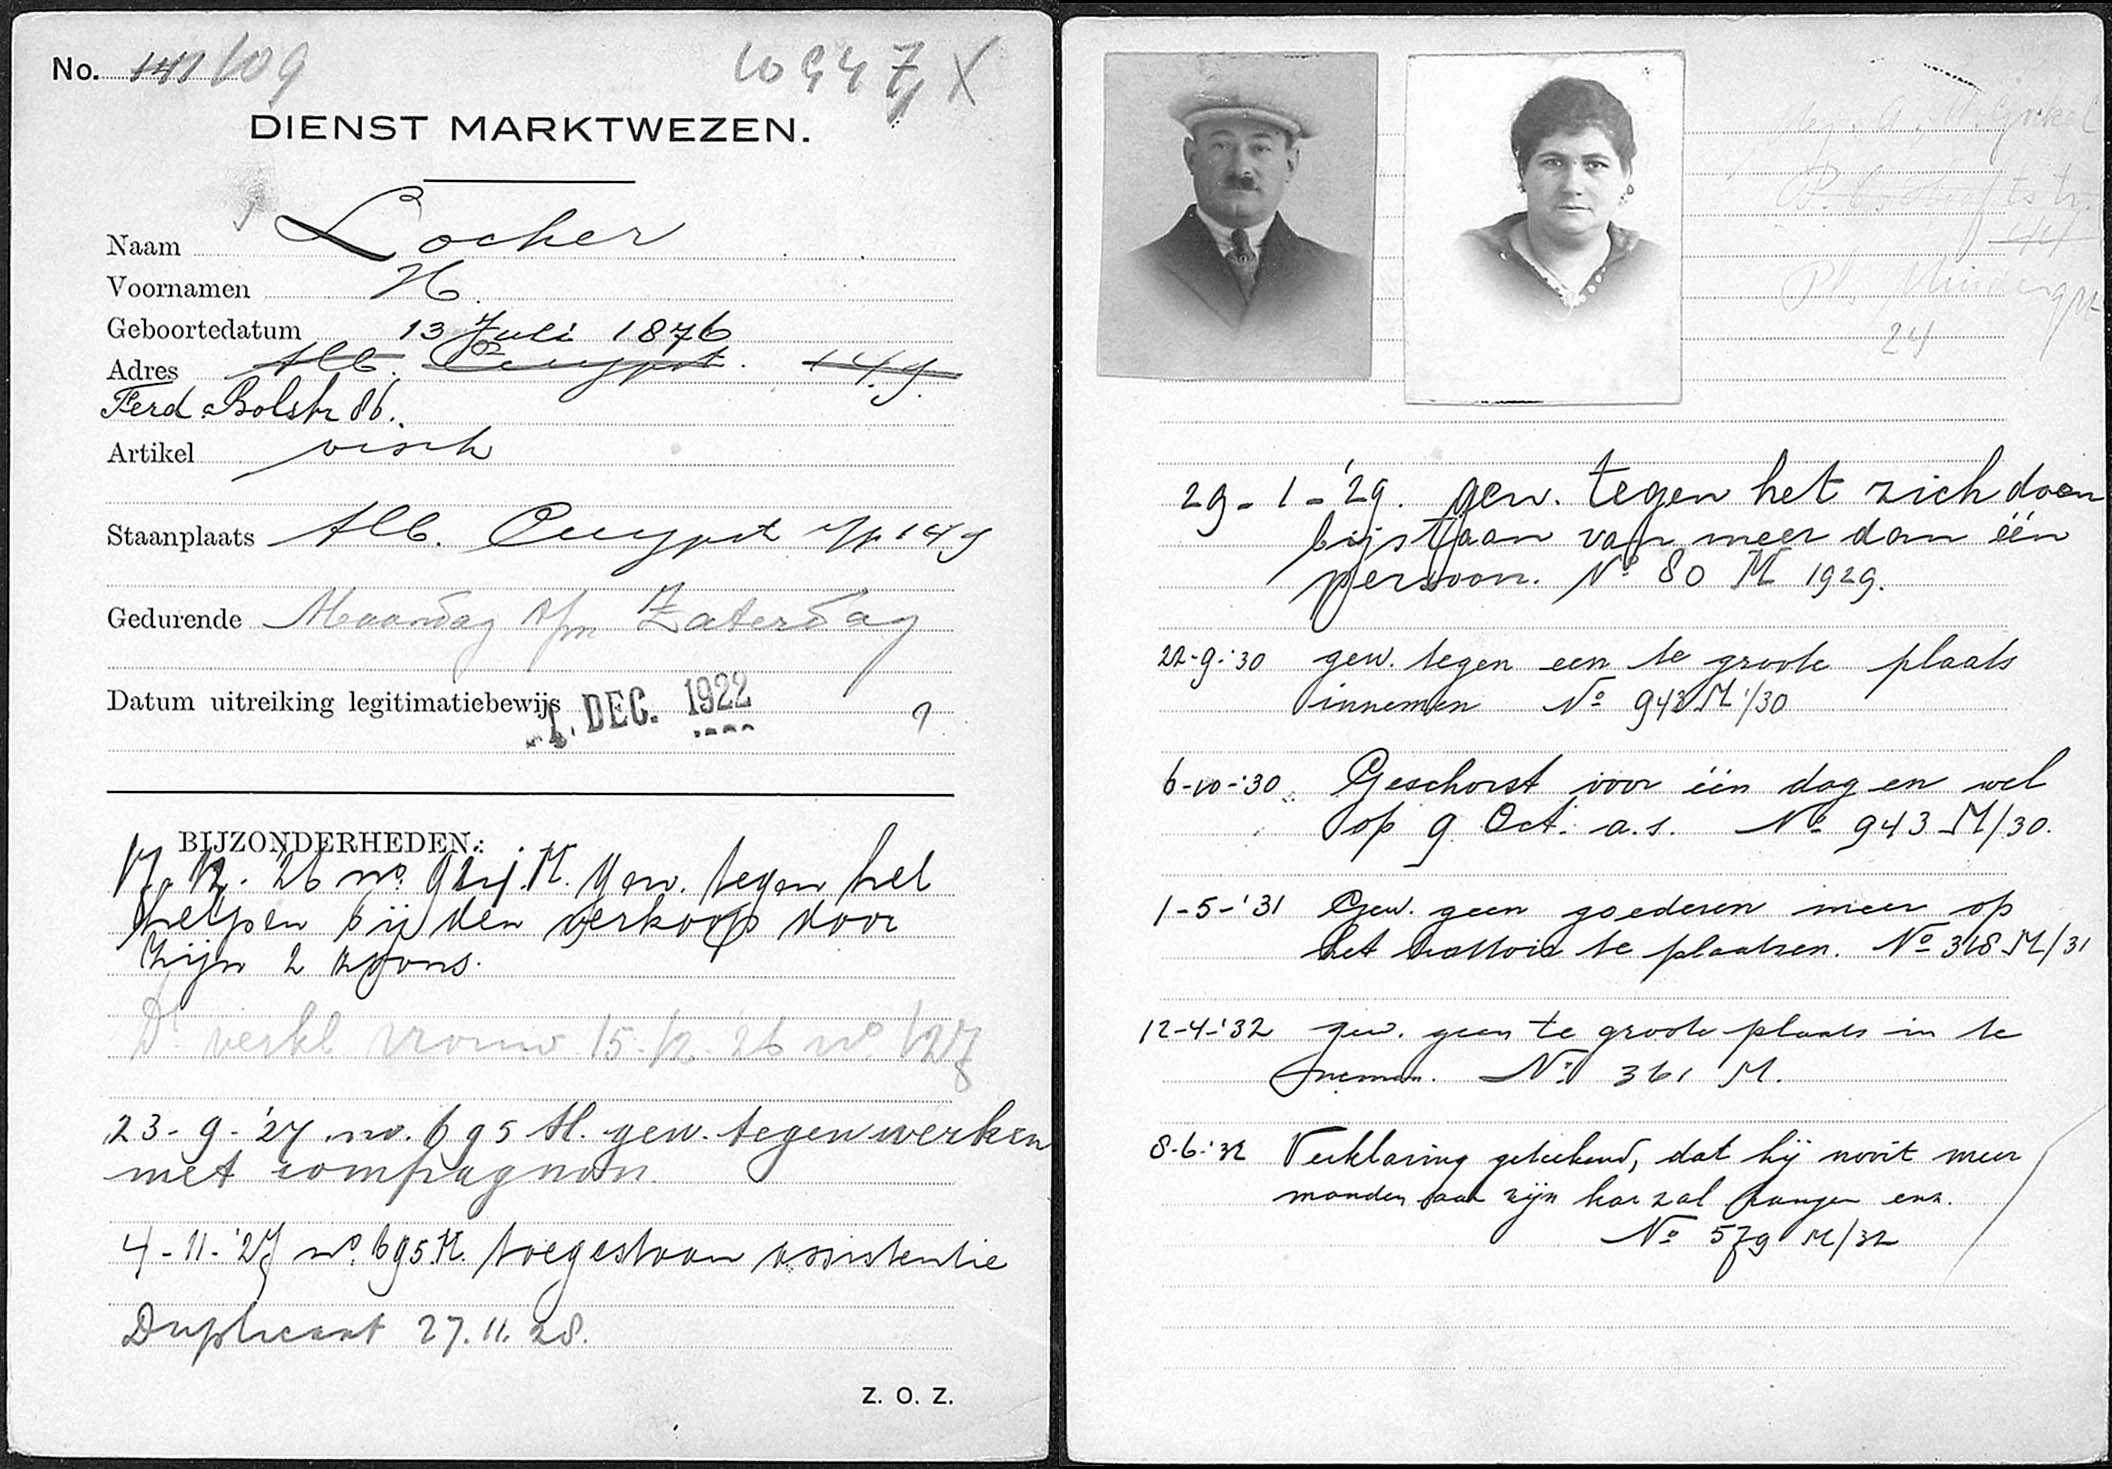 No. 141 109
10947 X
DIENST MARKTWEZEN.
Naam Locher
Voornamen H.
Geboortedatum 13 Juli 1876
Adres Alb. Cuypstr. 149
Ferd. Bolstr 86.
Artikel visch
Staanplaats Alb. Cuypstr 149
Gedurende Maandag t/m Zaterdag
Datum uitreiking legitimatiebewijs 1. DEC. 1922
BIJZONDERHEDEN:
17.12.'26 no. 924 M. gew. tegen het
helpen bij den verkoop door
zijn 2 zoons.
verkl vrouw 15-12-26 no 127
23-9-'27 no. 695 M. gew. tegen werken
met compagnon.
4-11-'27 no. 695 M. toegestaan assistentie
Duplicaat 27.11.28.
Z. O. Z.
24
29-1-'29. gew. tegen het zich doen
bijstaan van meer dan één
persoon. No 80 M 1929.
22-9-'30 gew. tegen een te groote plaats
innemen No 943 M/30
6-10-'30 Geschorst voor één dag en wel
op 9 Oct. a.s. No 943 M/30.
1-5-'31 Gew. geen goederen meer op
het trottoir te plaatsen. No 318 M/31
12-4-'32 gew. geen te groote plaats in te
nemen. No 361 M.
8-6-'32 Verklaring geteekend, dat hij nooit meer
manden aan zijn kar zal hangen enz.
No 579 M/32